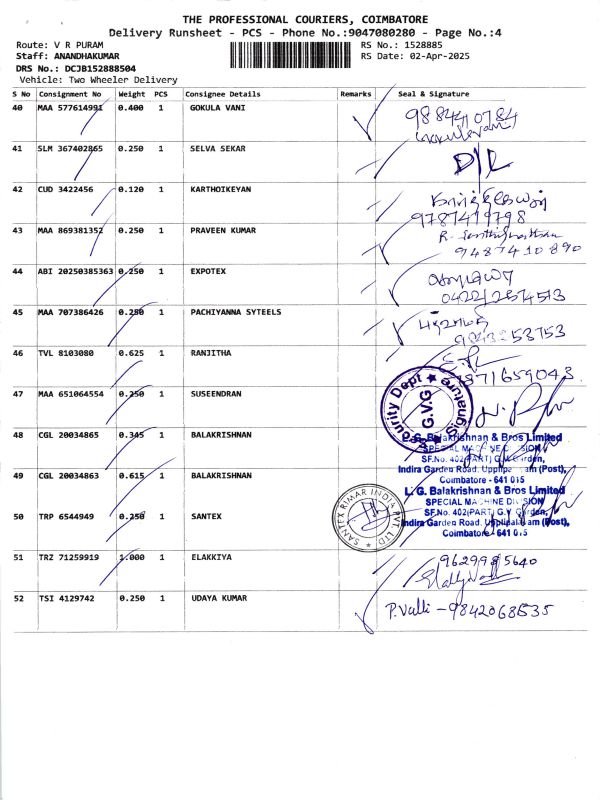 THE PROFESSIONAL COURIERS, COIMBATORE
Delivery Runsheet - PCS - Phone No.:9047080280 - Page No.:4
Route: V R PURAM
RS No.: 1528885
Staff: ANANDHAKUMAR
RS Date: 02-Apr-2025
DRS No.: DCJB152888504
Vehicle: Two Wheeler Delivery
S No Consignment No Weight PCS Consignee Details Remarks Seal & Signature
40 MAA 577614991 0.400 1 GOKULA VANI 9884410784
41 SLM 367402865 0.250 1 SELVA SEKAR
42 CUD 3422456 0.120 1 KARTHOIKEYAN
9787419798
43 MAA 869381352 0.250 1 PRAVEEN KUMAR
9487410890
44 ABI 20250385363 0.250 1 EXPOTEX
0422/2574513
45 MAA 707386426 0.250 1 PACHIYANNA SYTEELS
46 TVL 8103080 0.625 1 RANJITHA
47 MAA 651064554 0.250 1 SUSEENDRAN
Security Dept ★ Signature ★
G.V.G
48 CGL 20034865 0.345 1 BALAKRISHNAN
L.G. Balakrishnan & Bros Limited
SPECIAL MACHINE DIVISION
SF.No. 402(PART) G.V. Garden,
Indira Garden Road, Uppilipalayam (Post),
Coimbatore - 641 015
49 CGL 20034863 0.615 1 BALAKRISHNAN
L.G. Balakrishnan & Bros Limited
SPECIAL MACHINE DIVISION
SF.No. 402(PART) G.V. Garden,
Indira Garden Road, Uppilipalayam (Post),
Coimbatore - 641 015
50 TRP 6544949 0.250 1 SANTEX
SANTEX RIMAR INDIA PVT. LTD
51 TRZ 71259919 1.000 1 ELAKKIYA
9629985640
52 TSI 4129742 0.250 1 UDAYA KUMAR
P.Valli - 9842068535